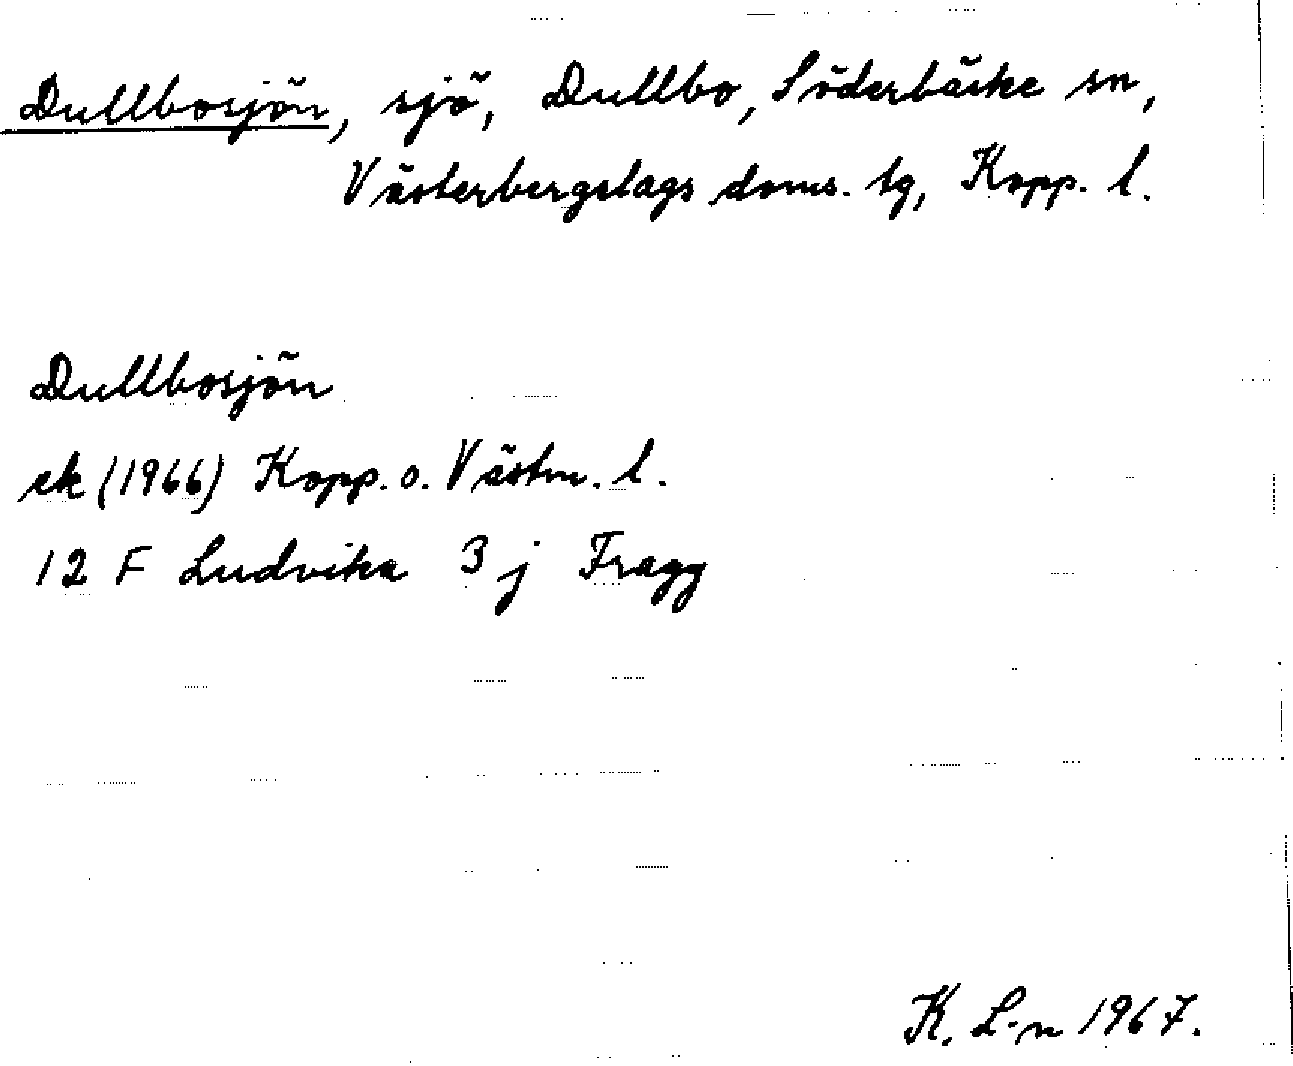 Dullbosjön, sjö, Dullbo, Söderbärke sn,
Västerbergslags doms. tg, Kopp. l.
Dullbosjön
ek (1966) Kopp. o. Västm. l.
12 F Ludvika 3 j Fragg
K. L-n 1967.